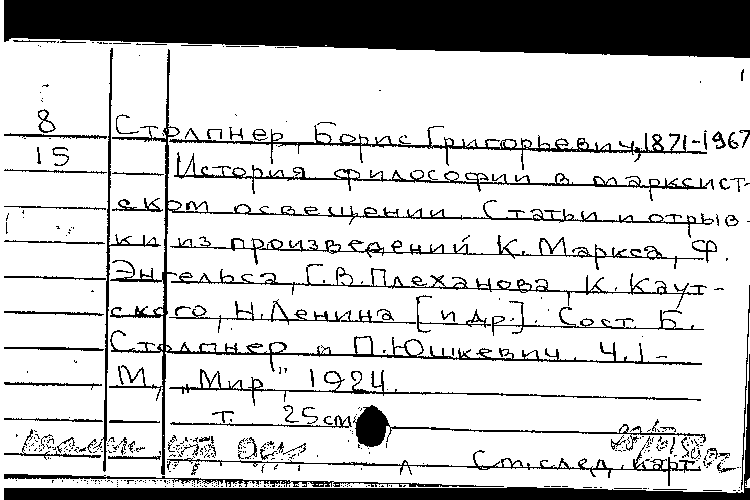 8 Столпнер, Борис Григорьевич, 1871-1967
15 История философии в марксист-
ском освещении. Статьи и отрыв-
ки из произведений К. Маркса, Ф.
Энгельса, Г.В. Плеханова, К. Каут-
ского, Н. Ленина [и др.]. Сост. Б.
Столпнер и П. Юшкевич. Ч. 1-
М., „Мир", 1924.
т. 25 см
См. след. карт.